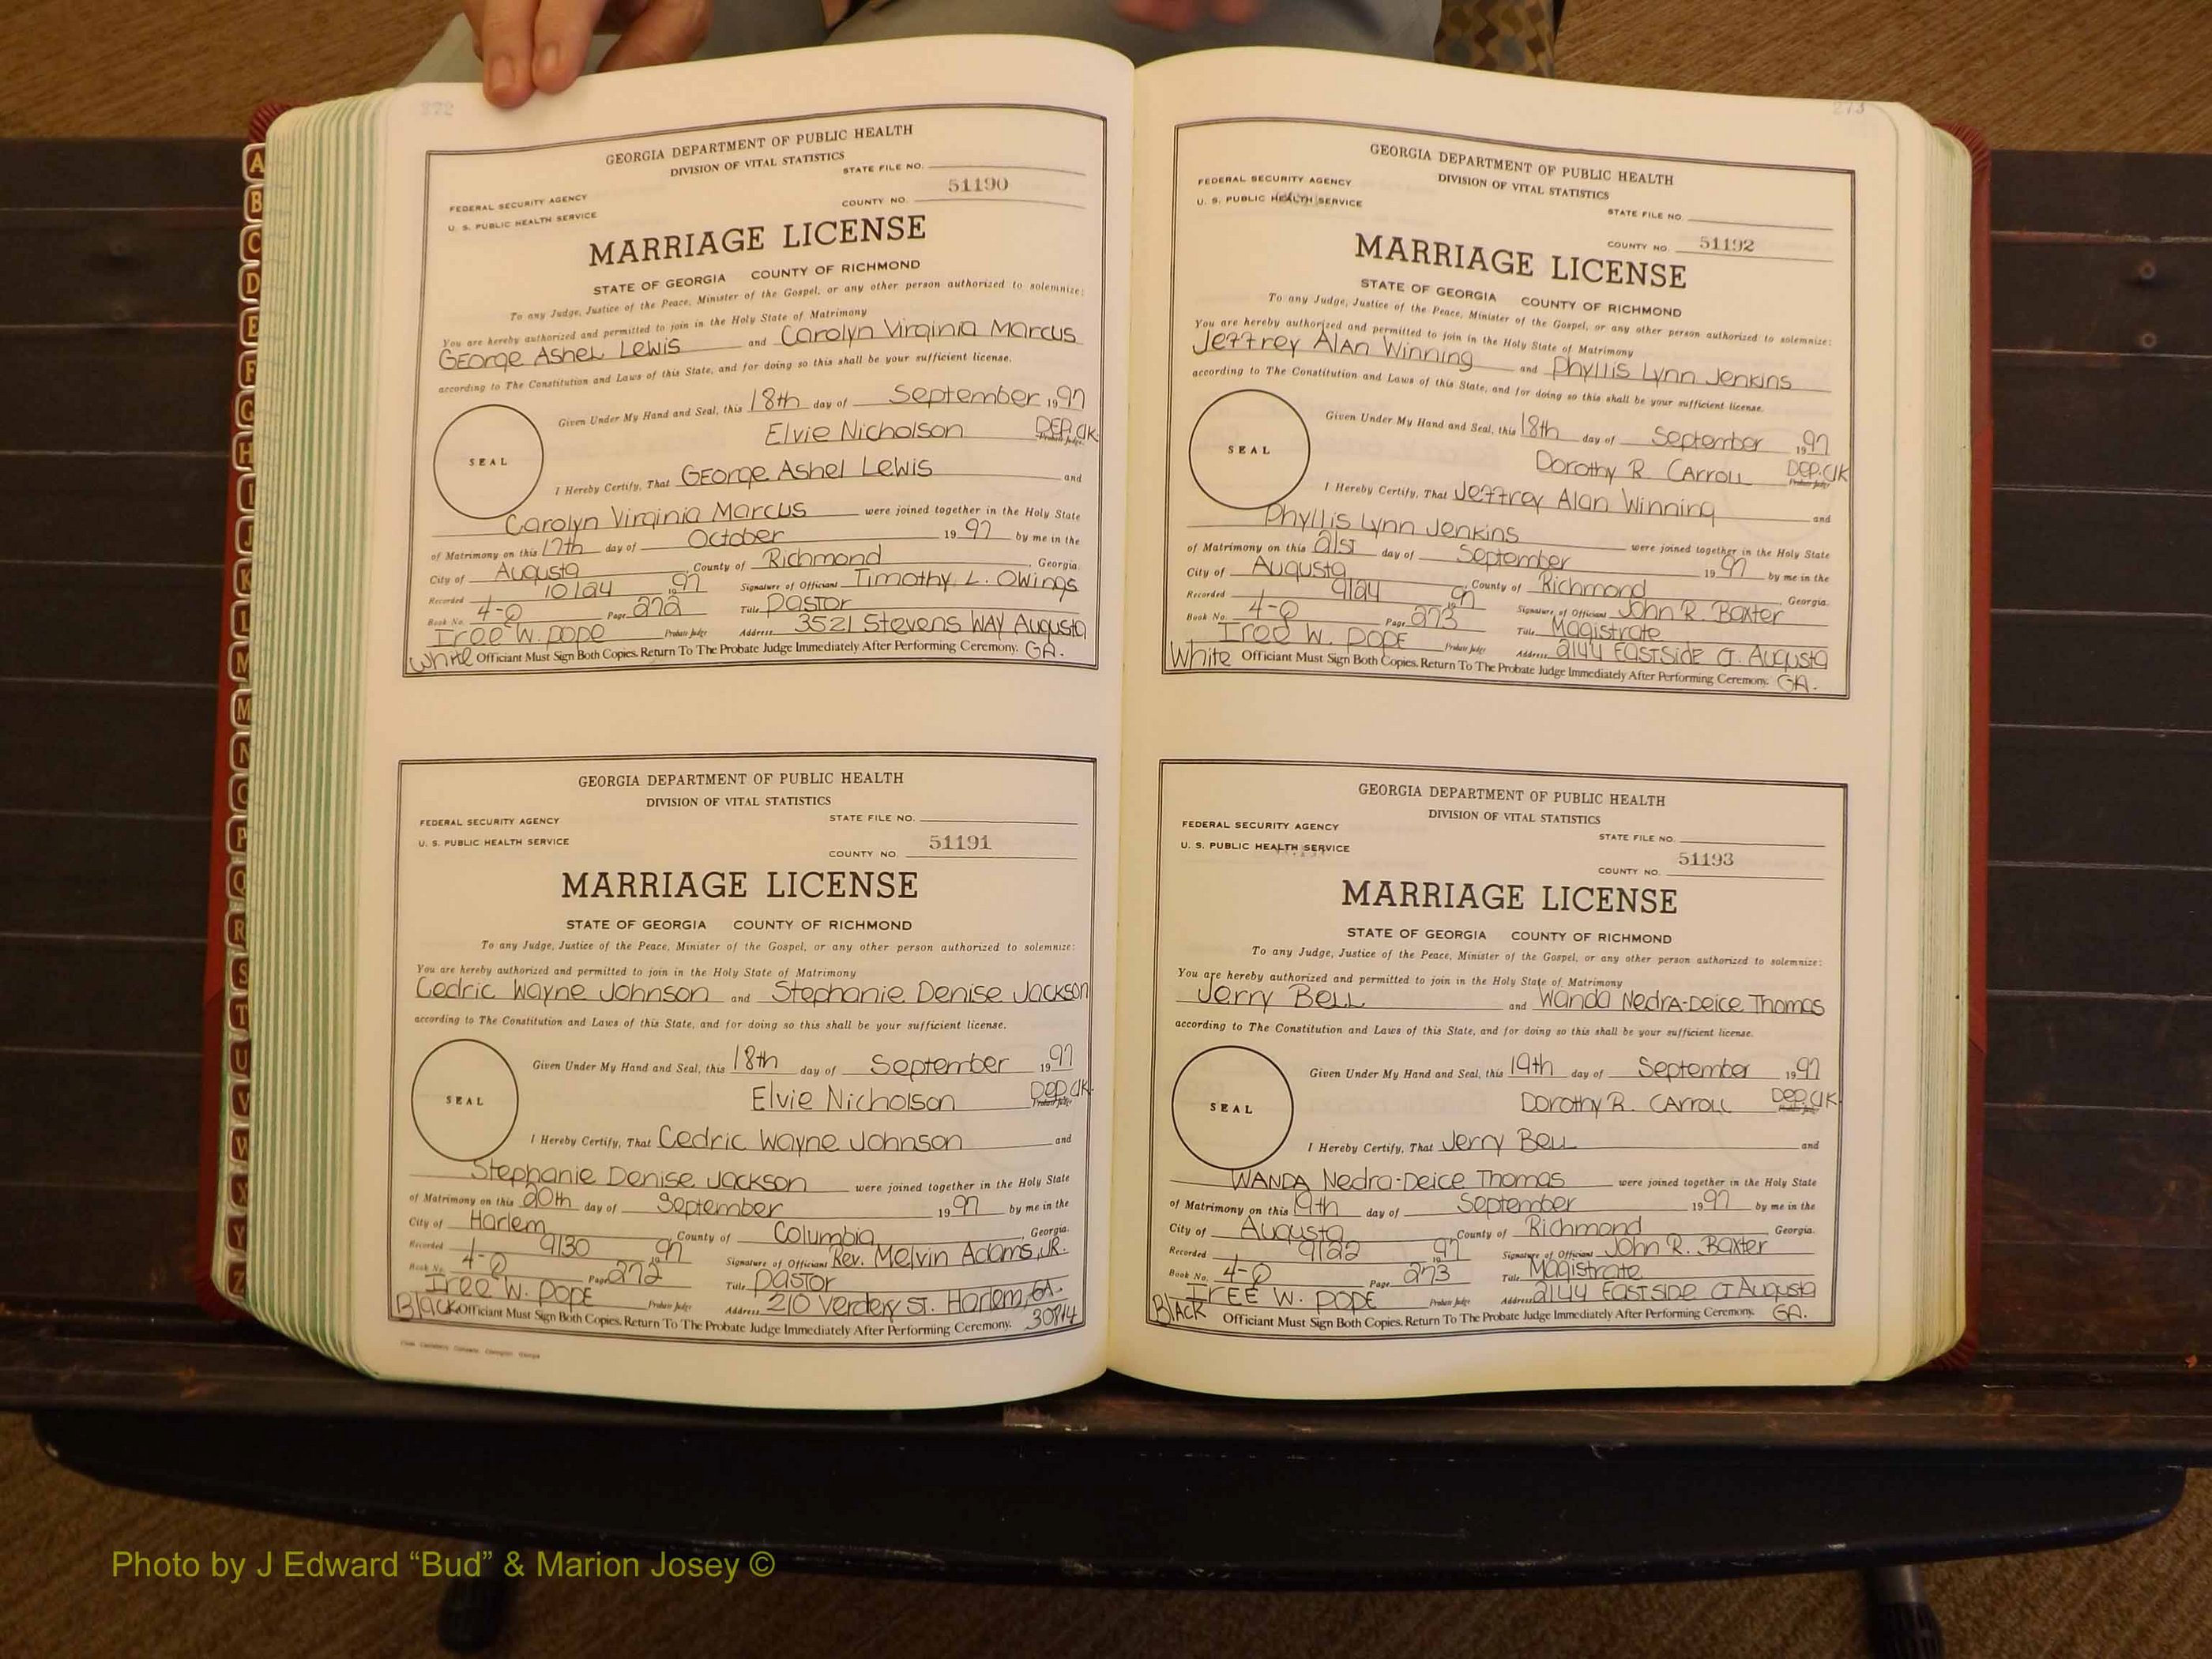 272
GEORGIA DEPARTMENT OF PUBLIC HEALTH
DIVISION OF VITAL STATISTICS
STATE FILE NO.
FEDERAL SECURITY AGENCY
U. S. PUBLIC HEALTH SERVICE
COUNTY NO. 51190
MARRIAGE LICENSE
STATE OF GEORGIA COUNTY OF RICHMOND
To any Judge, Justice of the Peace, Minister of the Gospel, or any other person authorized to solemnize:
You are hereby authorized and permitted to join in the Holy State of Matrimony
George Ashel Lewis and Carolyn Virginia Marcus
according to The Constitution and Laws of this State, and for doing so this shall be your sufficient license.
Given Under My Hand and Seal, this 18th day of September 1997
Elvie Nicholson DEP. Clk.
SEAL
I Hereby Certify, That George Ashel Lewis and
Carolyn Virginia Marcus were joined together in the Holy State
of Matrimony on this 17th day of October 1997 by me in the
City of Augusta, County of Richmond, Georgia.
Recorded 10/24 1997 Signature of Officiant Timothy L. Owings
Book No. 4-Q Page 272 Title Pastor
Iree W. Pope Probate Judge Address 3521 Stevens Way Augusta
White Officiant Must Sign Both Copies. Return To The Probate Judge Immediately After Performing Ceremony. GA.
GEORGIA DEPARTMENT OF PUBLIC HEALTH
DIVISION OF VITAL STATISTICS
FEDERAL SECURITY AGENCY STATE FILE NO.
U. S. PUBLIC HEALTH SERVICE
COUNTY NO. 51191
MARRIAGE LICENSE
STATE OF GEORGIA COUNTY OF RICHMOND
To any Judge, Justice of the Peace, Minister of the Gospel, or any other person authorized to solemnize:
You are hereby authorized and permitted to join in the Holy State of Matrimony
Cedric Wayne Johnson and Stephanie Denise Jackson
according to The Constitution and Laws of this State, and for doing so this shall be your sufficient license.
Given Under My Hand and Seal, this 18th day of September 1997
Elvie Nicholson Dep. Clk.
SEAL
I Hereby Certify, That Cedric Wayne Johnson and
Stephanie Denise Jackson were joined together in the Holy State
of Matrimony on this 20th day of September 1997 by me in the
City of Harlem, County of Columbia, Georgia.
Recorded 9/30 1997 Signature of Officiant Rev. Melvin Adams, Jr.
Book No. 4-Q Page 272 Title Pastor
Iree W. Pope Probate Judge Address 210 Verdery St. Harlem, GA.
Black Officiant Must Sign Both Copies. Return To The Probate Judge Immediately After Performing Ceremony. 30814
273
GEORGIA DEPARTMENT OF PUBLIC HEALTH
DIVISION OF VITAL STATISTICS
FEDERAL SECURITY AGENCY
U. S. PUBLIC HEALTH SERVICE
STATE FILE NO.
COUNTY NO. 51192
MARRIAGE LICENSE
STATE OF GEORGIA COUNTY OF RICHMOND
To any Judge, Justice of the Peace, Minister of the Gospel, or any other person authorized to solemnize:
You are hereby authorized and permitted to join in the Holy State of Matrimony
Jeffrey Alan Winning and Phyllis Lynn Jenkins
according to The Constitution and Laws of this State, and for doing so this shall be your sufficient license.
Given Under My Hand and Seal, this 18th day of September 1997
Dorothy R. Carroll DEP. Clk
SEAL
I Hereby Certify, That Jeffrey Alan Winning and
Phyllis Lynn Jenkins were joined together in the Holy State
of Matrimony on this 21st day of September 1997 by me in the
City of Augusta, County of Richmond, Georgia.
Recorded 9/24 1997 Signature of Officiant John R. Baxter
Book No. 4-Q Page 273 Title Magistrate
Iree W. Pope Probate Judge Address 2144 Eastside Ct. Augusta
White Officiant Must Sign Both Copies. Return To The Probate Judge Immediately After Performing Ceremony. GA.
GEORGIA DEPARTMENT OF PUBLIC HEALTH
DIVISION OF VITAL STATISTICS
FEDERAL SECURITY AGENCY
U. S. PUBLIC HEALTH SERVICE
STATE FILE NO.
COUNTY NO. 51193
MARRIAGE LICENSE
STATE OF GEORGIA COUNTY OF RICHMOND
To any Judge, Justice of the Peace, Minister of the Gospel, or any other person authorized to solemnize:
You are hereby authorized and permitted to join in the Holy State of Matrimony
Jerry Bell and Wanda Nedra-Deice Thomas
according to The Constitution and Laws of this State, and for doing so this shall be your sufficient license.
Given Under My Hand and Seal, this 19th day of September 1997
Dorothy R. Carroll Dep. Clk.
SEAL
I Hereby Certify, That Jerry Bell and
Wanda Nedra-Deice Thomas were joined together in the Holy State
of Matrimony on this 19th day of September 1997 by me in the
City of Augusta, County of Richmond, Georgia.
Recorded 9/22 1997 Signature of Officiant John R. Baxter
Book No. 4-Q Page 273 Title Magistrate
Iree W. Pope Probate Judge Address 2144 Eastside Ct Augusta
Black Officiant Must Sign Both Copies. Return To The Probate Judge Immediately After Performing Ceremony. GA.
A
B
C
D
E
F
G
H
I
J
K
L
M
M
N
O
P
Q
R
S
T
U
V
W
X
Y
Z
Photo by J Edward “Bud” & Marion Josey ©